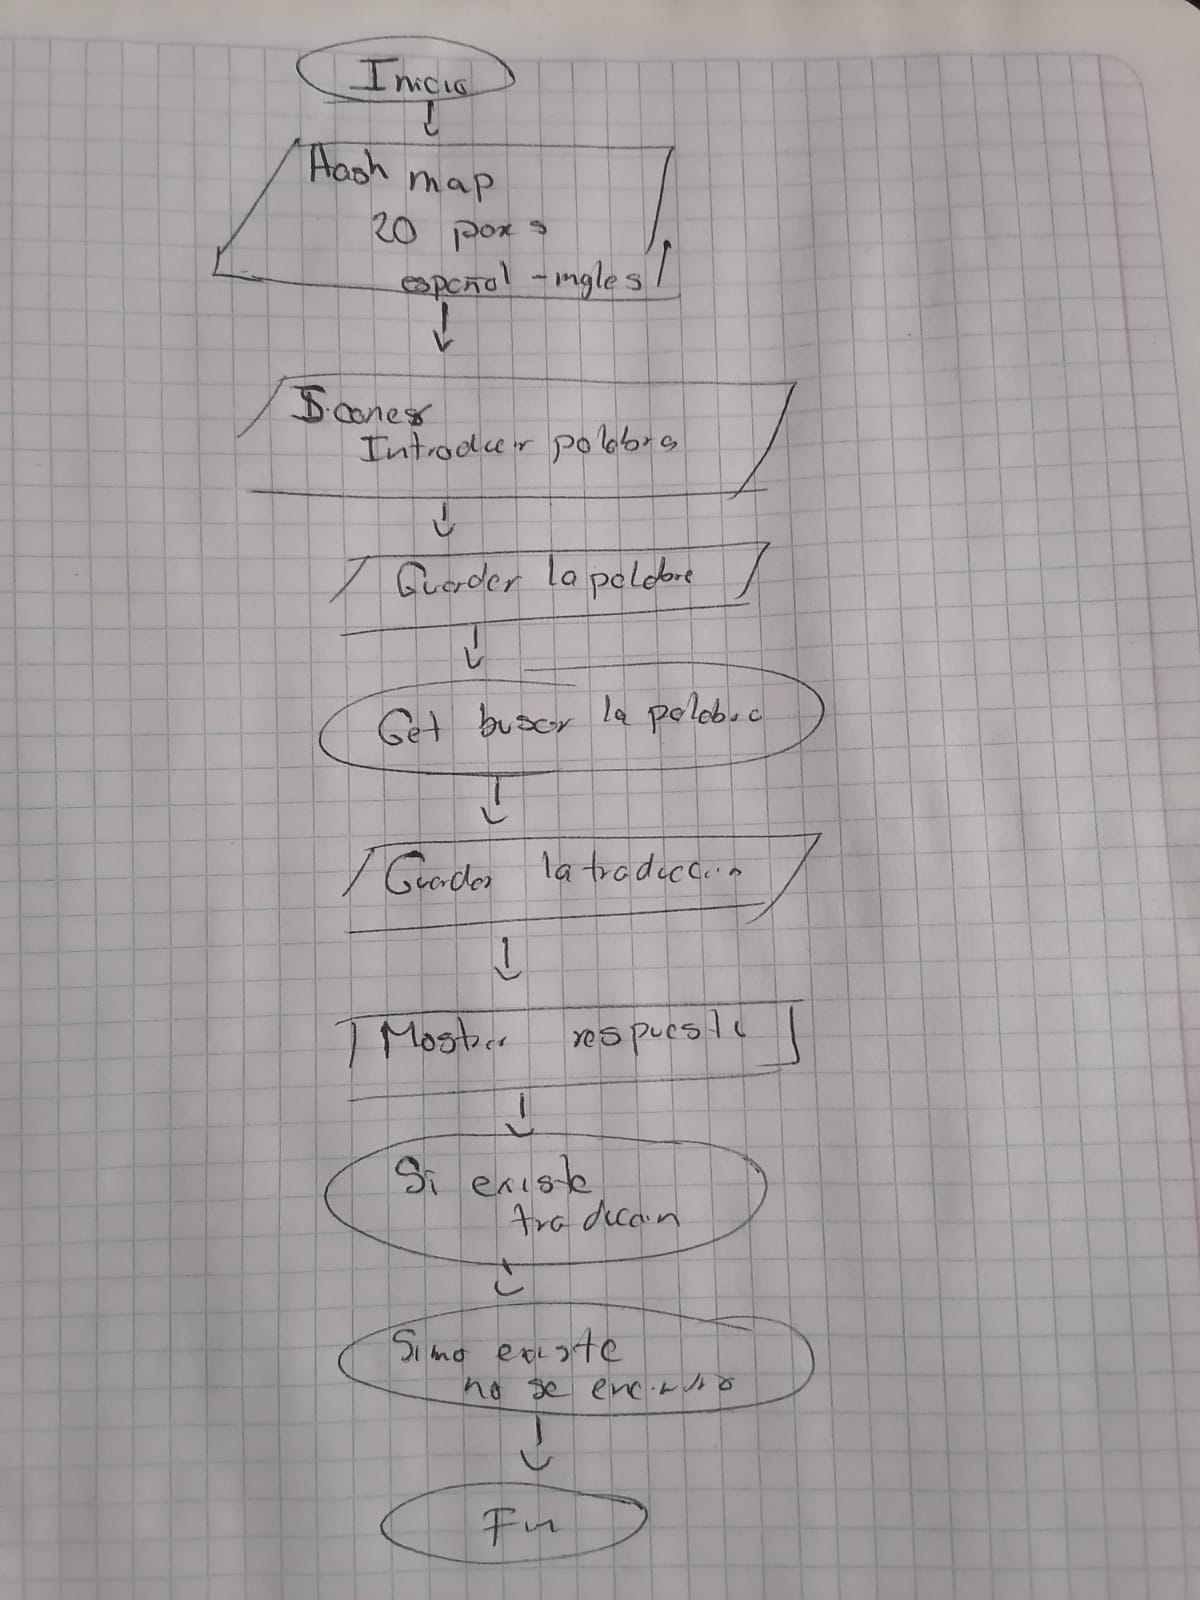 Inicio
Hash map
20 pares
español - ingles
Scaner
Introducir palabra
Guardar la palabra
Get buscar la palabra
Guardar la traduccion
Mostrar respuesta
Si existe
traduccion
Si no existe
no se encontro
Fin